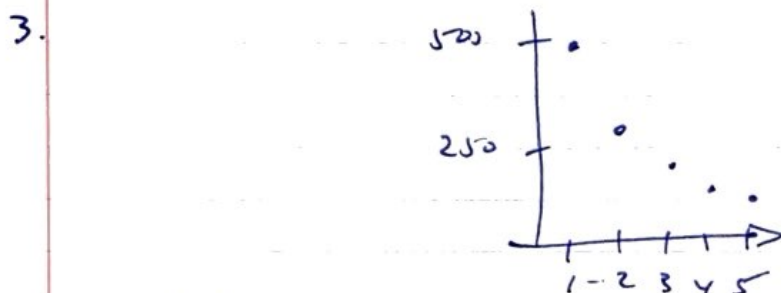 3.
500
250
1 2 3 4 5